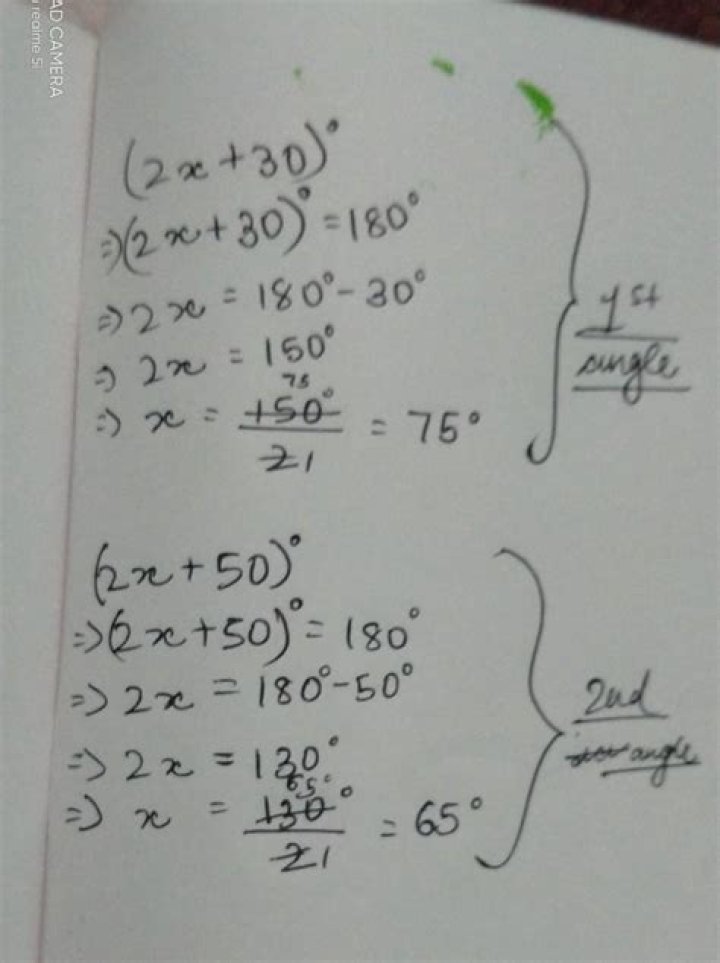 AD CAMERA
realme 5i
(2x+30)°
⇒(2x+30)°=180°
⇒2x = 180°-30°
⇒ 2x = 150°
75
⇒ x = 150°/21 = 75°
1st
angle
(2x+50)°
⇒(2x+50)°= 180°
⇒ 2x = 180°-50°
⇒ 2x = 130°
65°
⇒ x = 130°/21 = 65°
2nd
angle